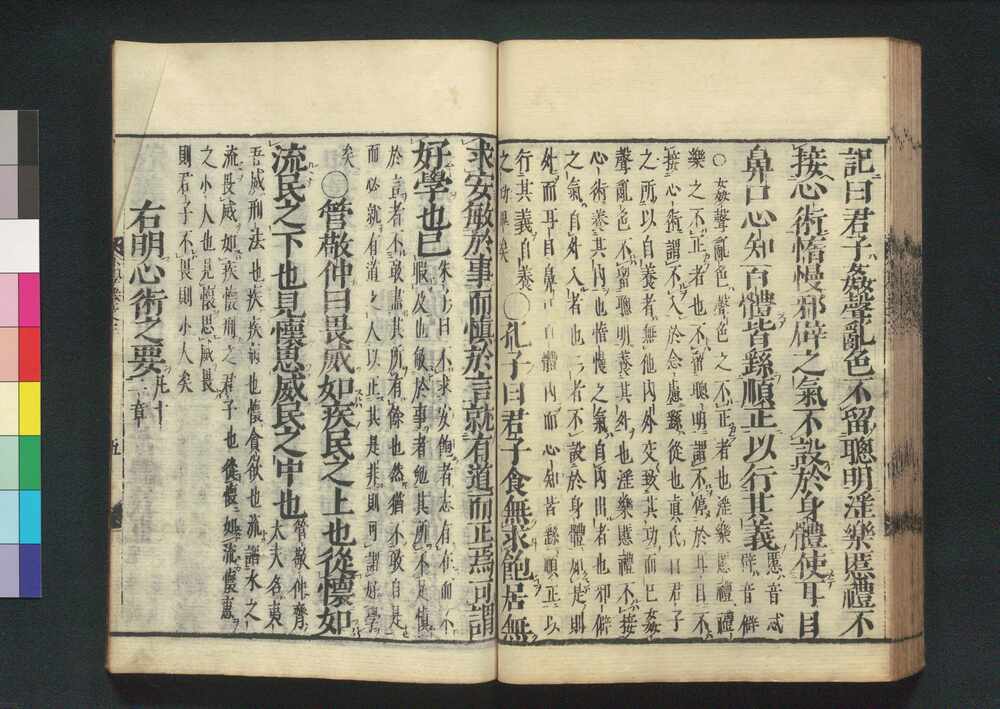 記曰君子姦聲亂色不留聰明淫樂慝禮不
接心術惰慢邪僻之氣不設於身體使耳目
鼻口心知百體皆繇順正以行其義慝音忒僻音僻
○姦聲亂色聲色之不正者也淫樂慝禮禮
樂之不正者也不留聰明謂不停於耳目不
接心術謂不入於念慮繇從也真氏曰君子
之所以自養者無他內外交致其功而已姦
聲亂色不留聰明養其外也淫樂慝禮不接
心術養其內也惰慢之氣自內出者也邪僻
之氣自外入者也二者不設於身體如是則
外而耳目鼻口百體內而心知皆順正以
行其義自養
之功畢矣○孔子曰君子食無求飽居無
求安敏於事而慎於言就有道而正焉可謂
好學也已朱子曰不求安飽者志有在而不
暇及也敏於事者勉其所不足慎
於言者不敢盡其所有餘也然猶不敢自是
而必就有道之人以正其是非則可謂好學
矣○管敬仲曰畏威如疾民之上也從懷如
流民之下也見懷思威民之中也管敬仲齊大夫名夷
吾威刑法也疾疾病也懷貪欲也流謂水之
流畏威如疾懷刑之君子也從懷如流懷惠
之小人也見懷思威畏
則君子不畏則小人矣
右明心術之要凡十二章
五